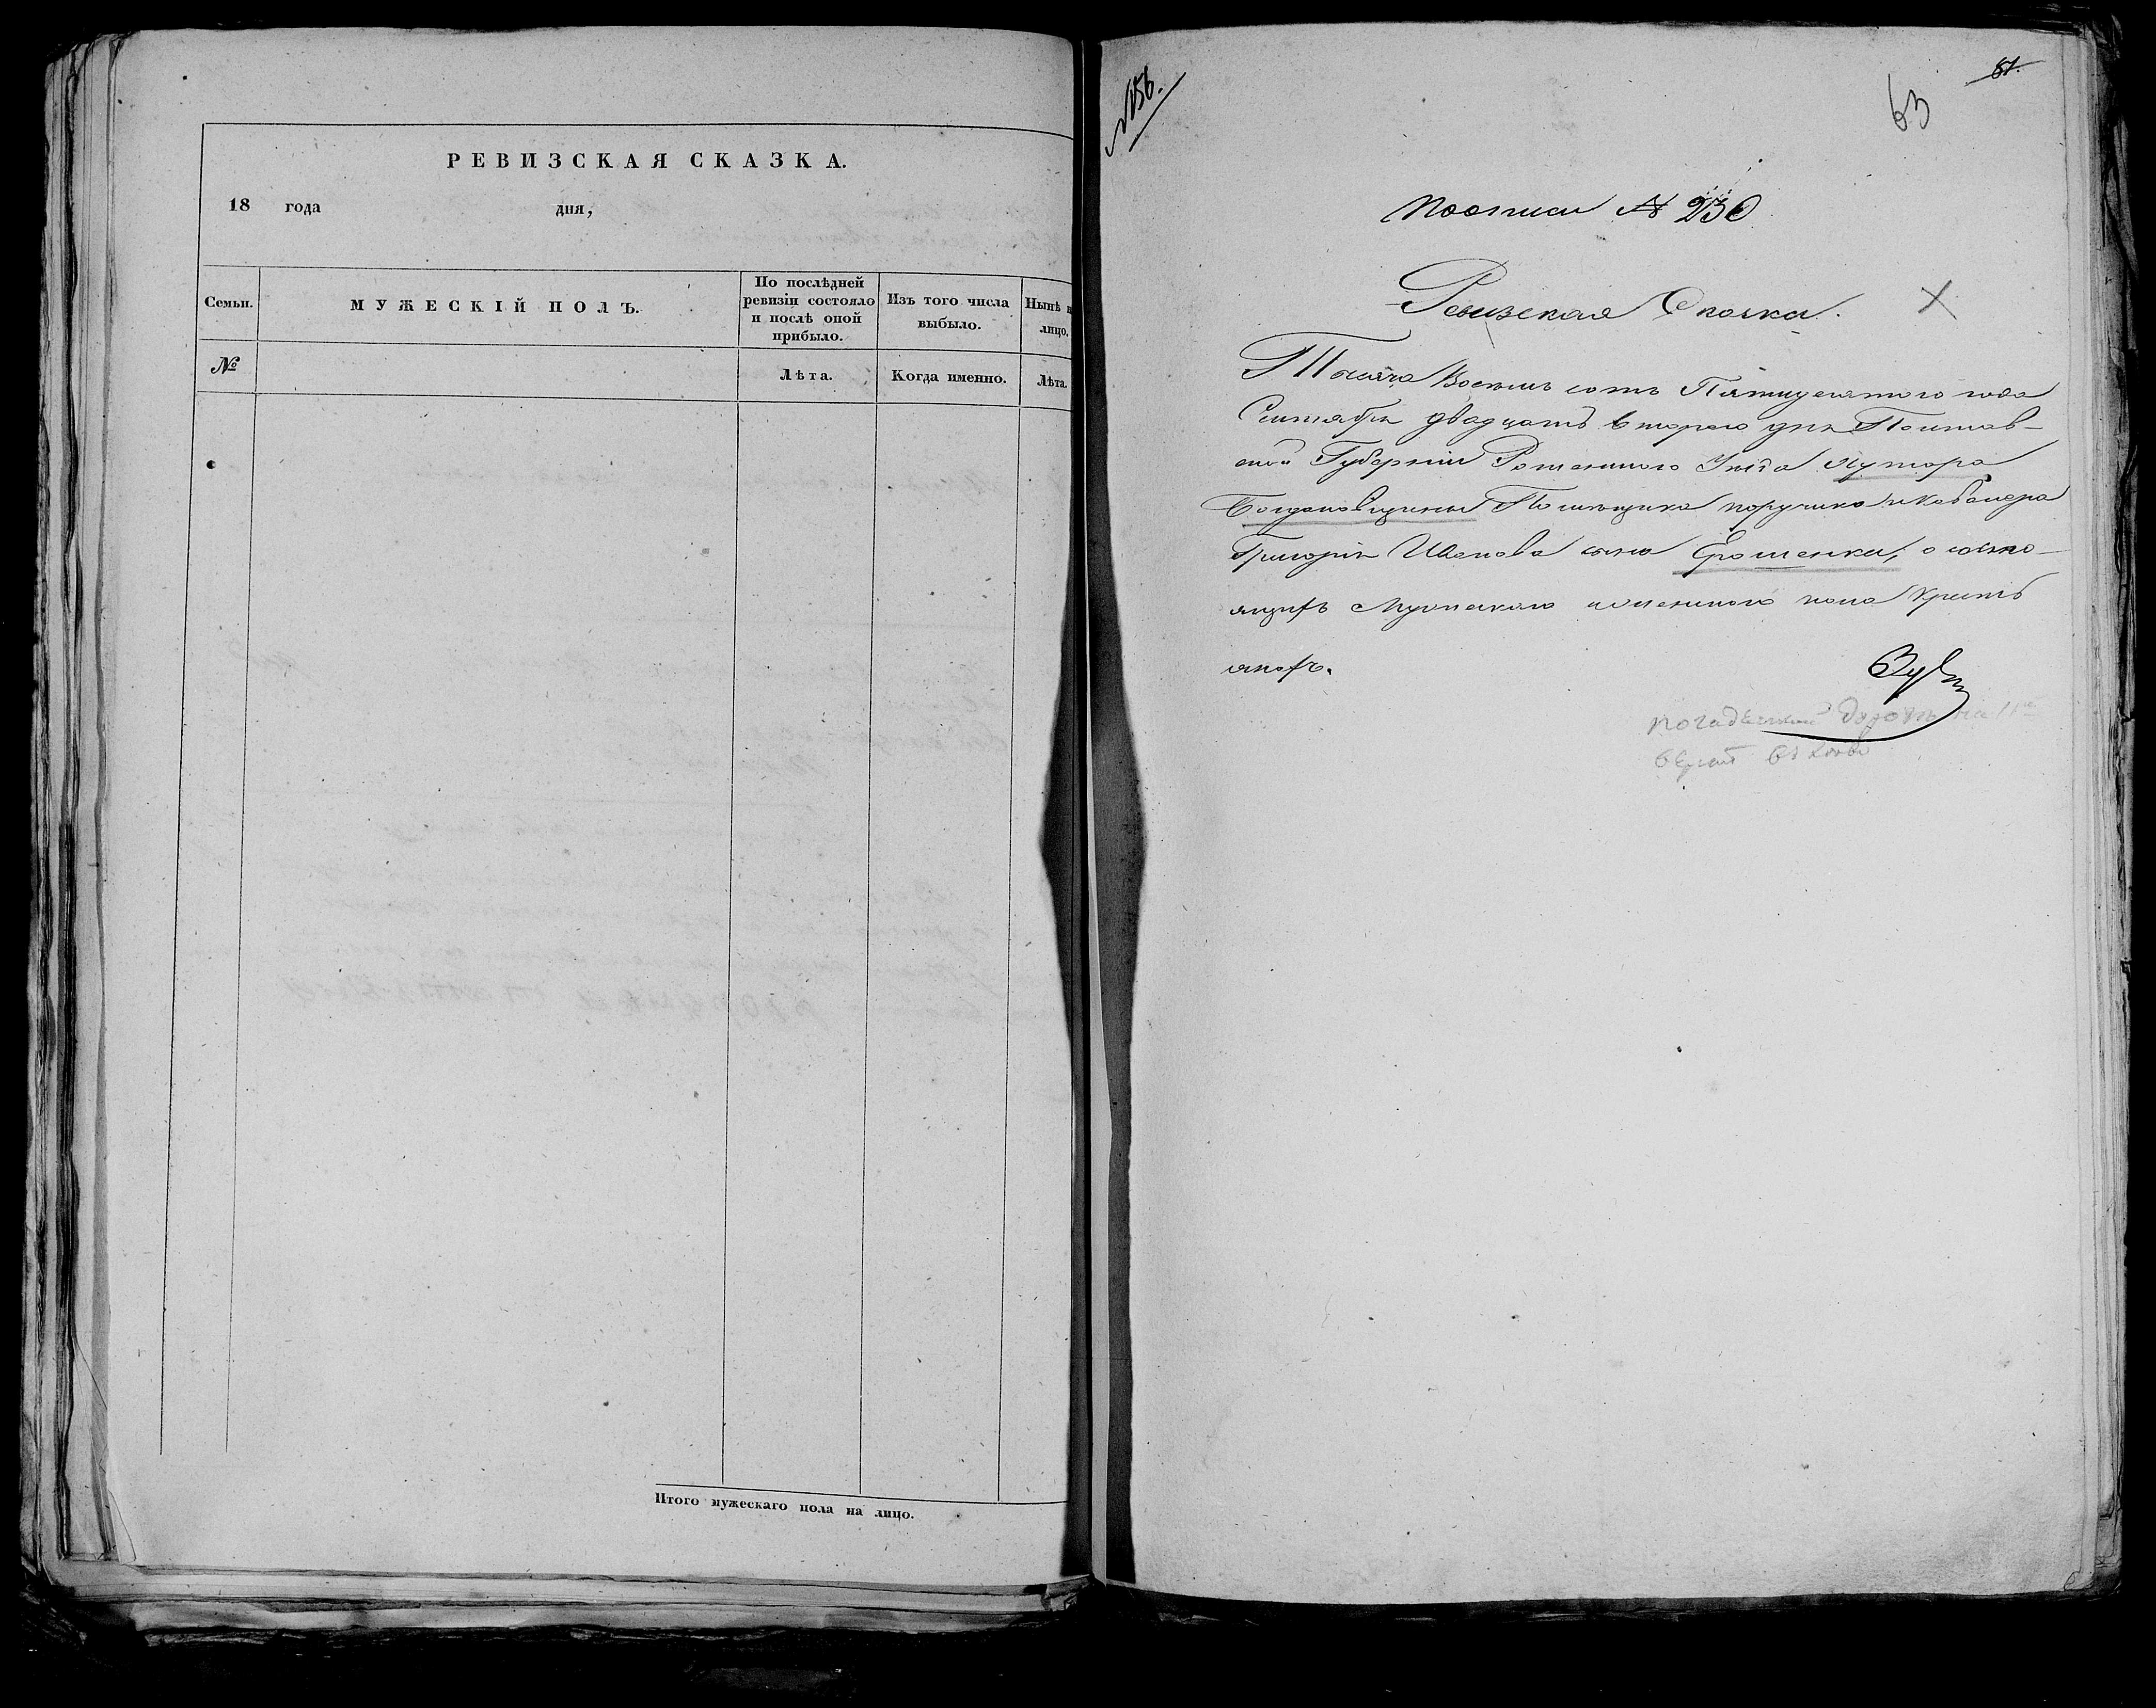 РЕВИЗСКАЯ СКАЗКА.
18 года дня,
Семьи.
МУЖЕСКІЙ ПОЛЪ.
По послѣдней
ревизіи состояло
и послѣ оной
прибыло.
Изъ того числа
выбыло.
Нынѣ н
лицо,
№
Лѣта.
Когда именно.
Лѣта.
Итого мужескаго пола на лицо.
№156.
81.
63
По описи № 230
Ревизская Сказка.
Тысяча Восемь сотъ Пятидесятого года
Сентября двадцать второго дня Полтав-
ской Губерніи Роменского Уезда Хутора
Богдановщины Помѣщика поручика и Кавалера
Григорія Иванова сына Ерошенка, о состо-
ящихъ Мужеского и женского пола Крестъ
янахъ.